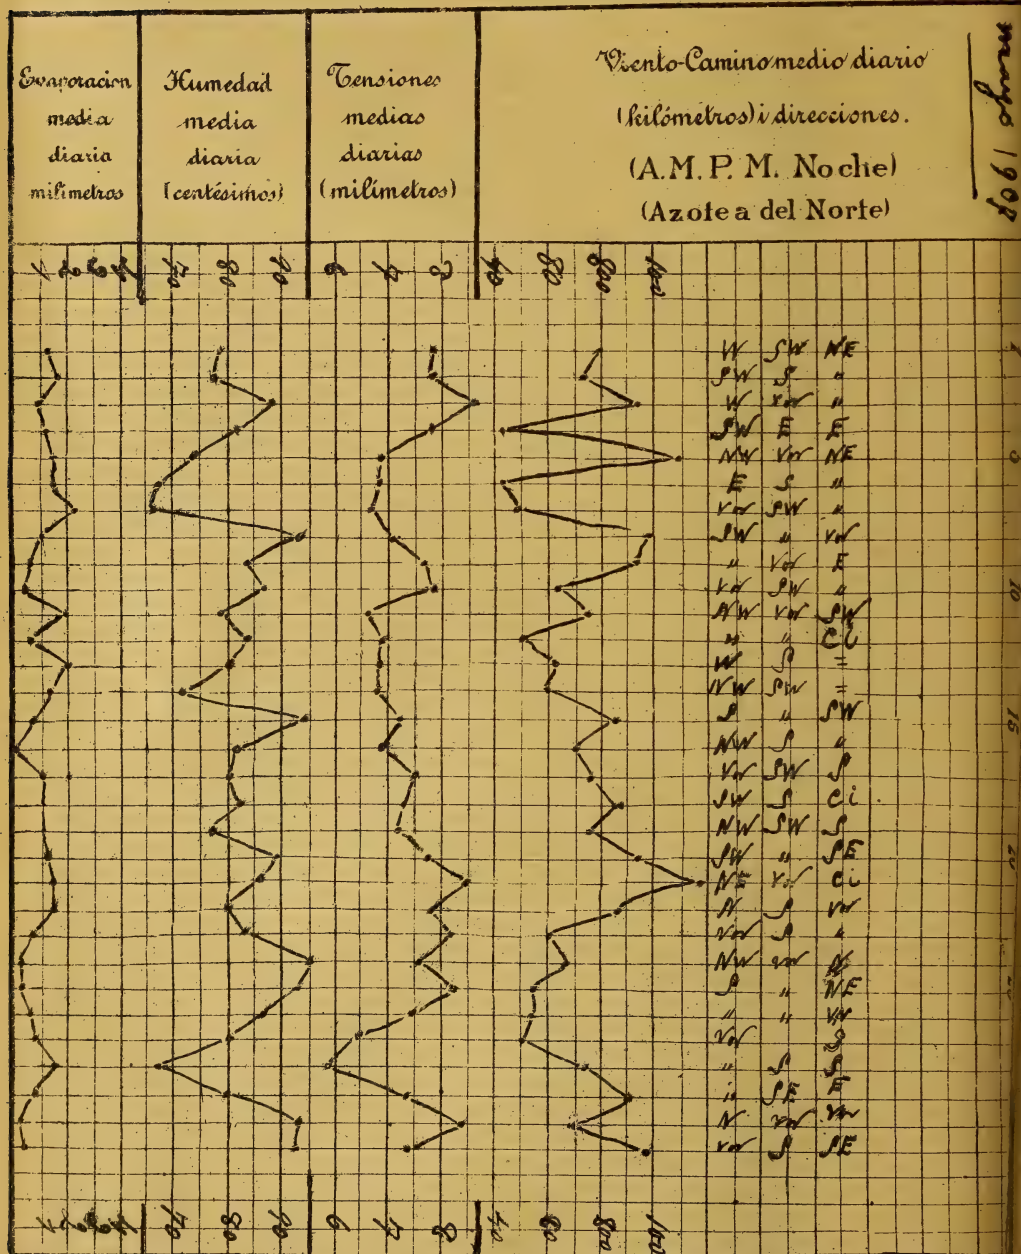 Evaporacion
media
diaria
milímetros
Humedad
media
diaria
(centésimos)
Tensiones
medias
diarias
(milímetros)
Viento-Camino medio diario
(kilómetros) i direcciones.
(A.M. P. M. Noche)
(Azotea del Norte)
1 2 3 4 70 80 90 6 7 8 40 100
W SW NE
SW S "
W var "
SW E E
NW var NE
E S "
var SW "
SW " var
" var E
var SW "
NW var SW
" " Ci
W S =
NW SW =
S " SW
NW S "
var SW S
SW S Ci
NW SW S
SW " SE
NE var Ci
N S var
var S "
NW var N
S " NE
" "
var S
" S S
SE E
N var var
var S SE
10
15
70 80 90 6 7 8 40 100